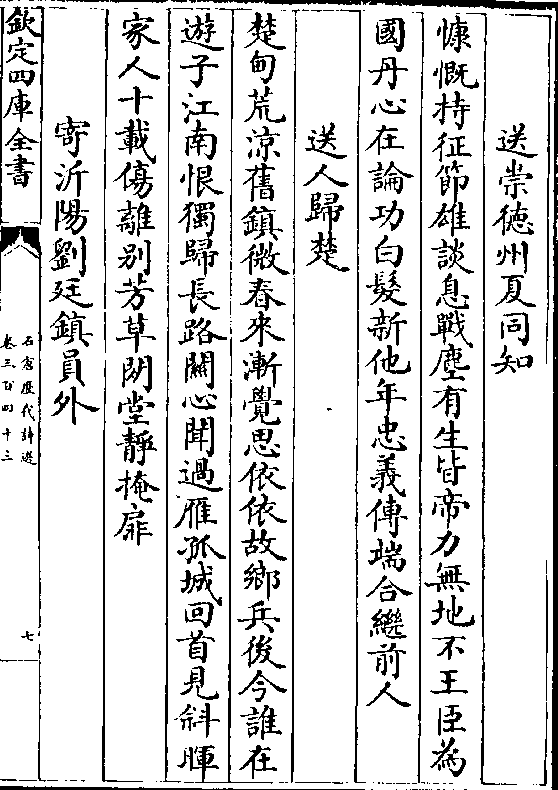 送崇德州夏同知
慷慨持征節雄談息戰塵有生皆帝力無地不王臣為
國丹心在論功白髮新他年忠義傳端合繼前人
送人歸楚
楚甸荒涼舊鎮微春來漸覺思依依故鄉兵後今誰在
遊子江南恨獨歸長路關心聞過雁孤城回首見斜暉
家人十載傷離别芳草閉堂靜掩扉
寄沂陽劉廷鎮員外
欽定四庫全書
石倉歷代詩選
卷三百四十三
七